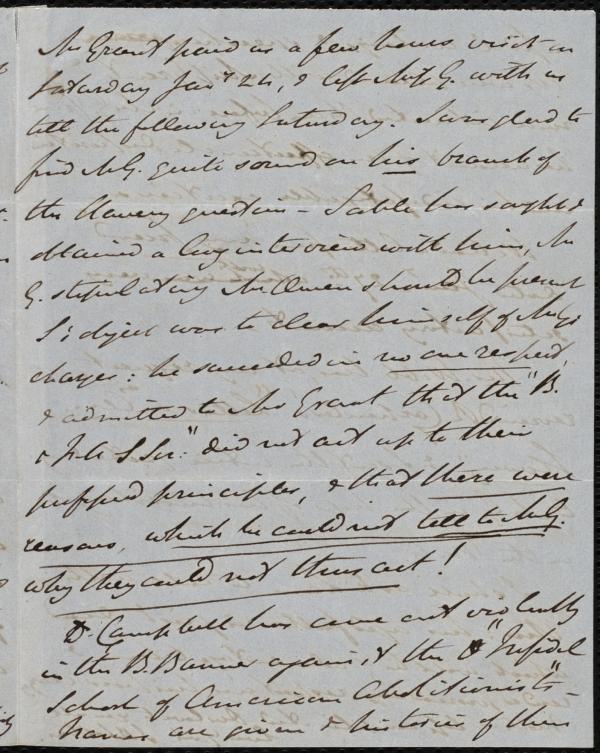 Mr Grant paid us a few hours visit on
Saturday Jany 24, & left Miss G. with us
till the following Saturday. I was glad to
find Mr G. quite sound on his branch of
the Slavery question – Sable has sought &
obtained a long interview with him, Mr
G. stipulating Mr Owen should be present
S's object was to clear himself of
charges: he succeeded in no one respect,
& admitted to Mr Grant that the "B.
& F. A S Soc:" did not act up to their
professed principles, & that there were
reasons, which he could not tell to Mr G.
why they could not thus act!
Dr Campbell has come out violently
in the B. Banner against the "Infidel
School of American Abolitionists" –
Names are given & histories of them